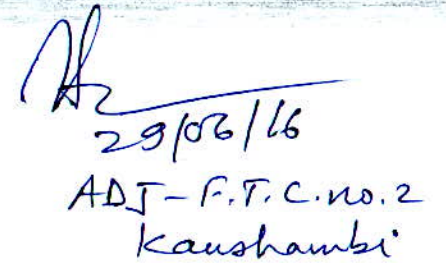 29/06/16
ADJ - F.T.C. no. 2
Kaushambi